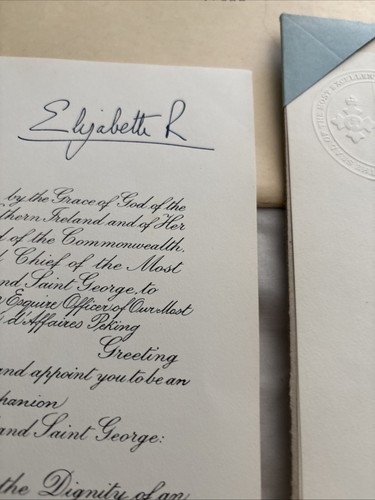 Elizabeth R
by the Grace of God of the
thern Ireland and of Her
d of the Commonwealth.
d Chief of the Most
nd Saint George, to
Esquire Officer of Our Most
d'Affaires Peking
Greeting
and appoint you to be an
panion
and Saint George:
the Dignity of an
THE SEAL OF THE MOST EXCELLENT